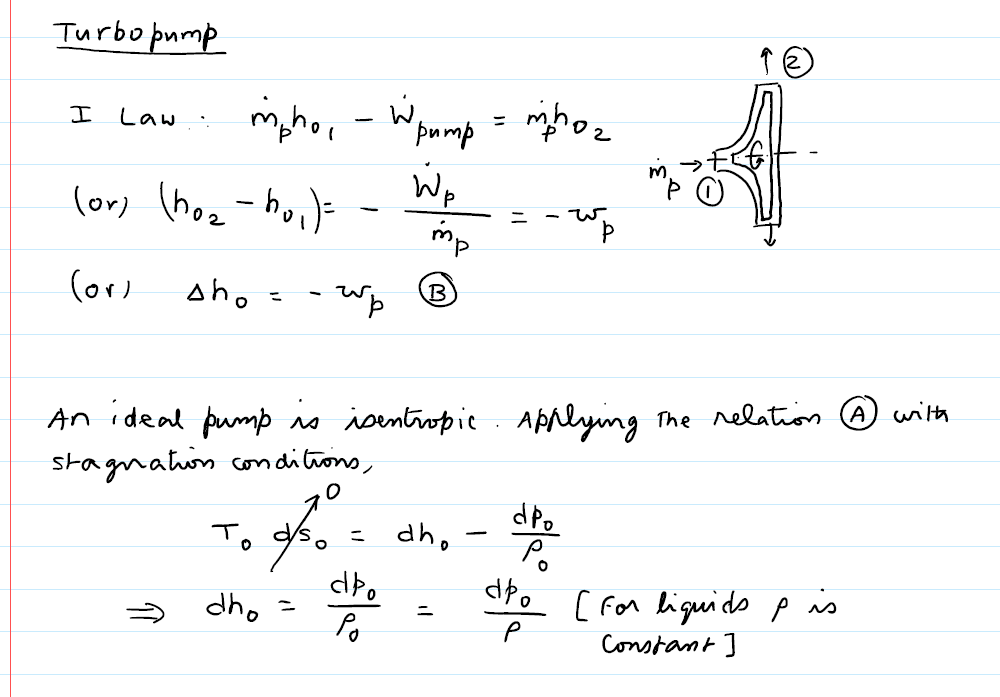 Turbopump
I Law : ṁₚh₀₁ − Ẇpump = ṁₚh₀₂
(or) (h₀₂ − h₀₁) = − Ẇₚ/ṁₚ = − wₚ
(or) Δh₀ = − wₚ Ⓑ
② 
ṁₚ → ①
An ideal pump is isentropic. Applying the relation Ⓐ with
stagnation conditions,
T₀ ds₀ ↗0 = dh₀ − dp₀/ρ₀
⇒ dh₀ = dp₀/ρ₀ = dp₀/ρ [For liquids ρ is
constant]